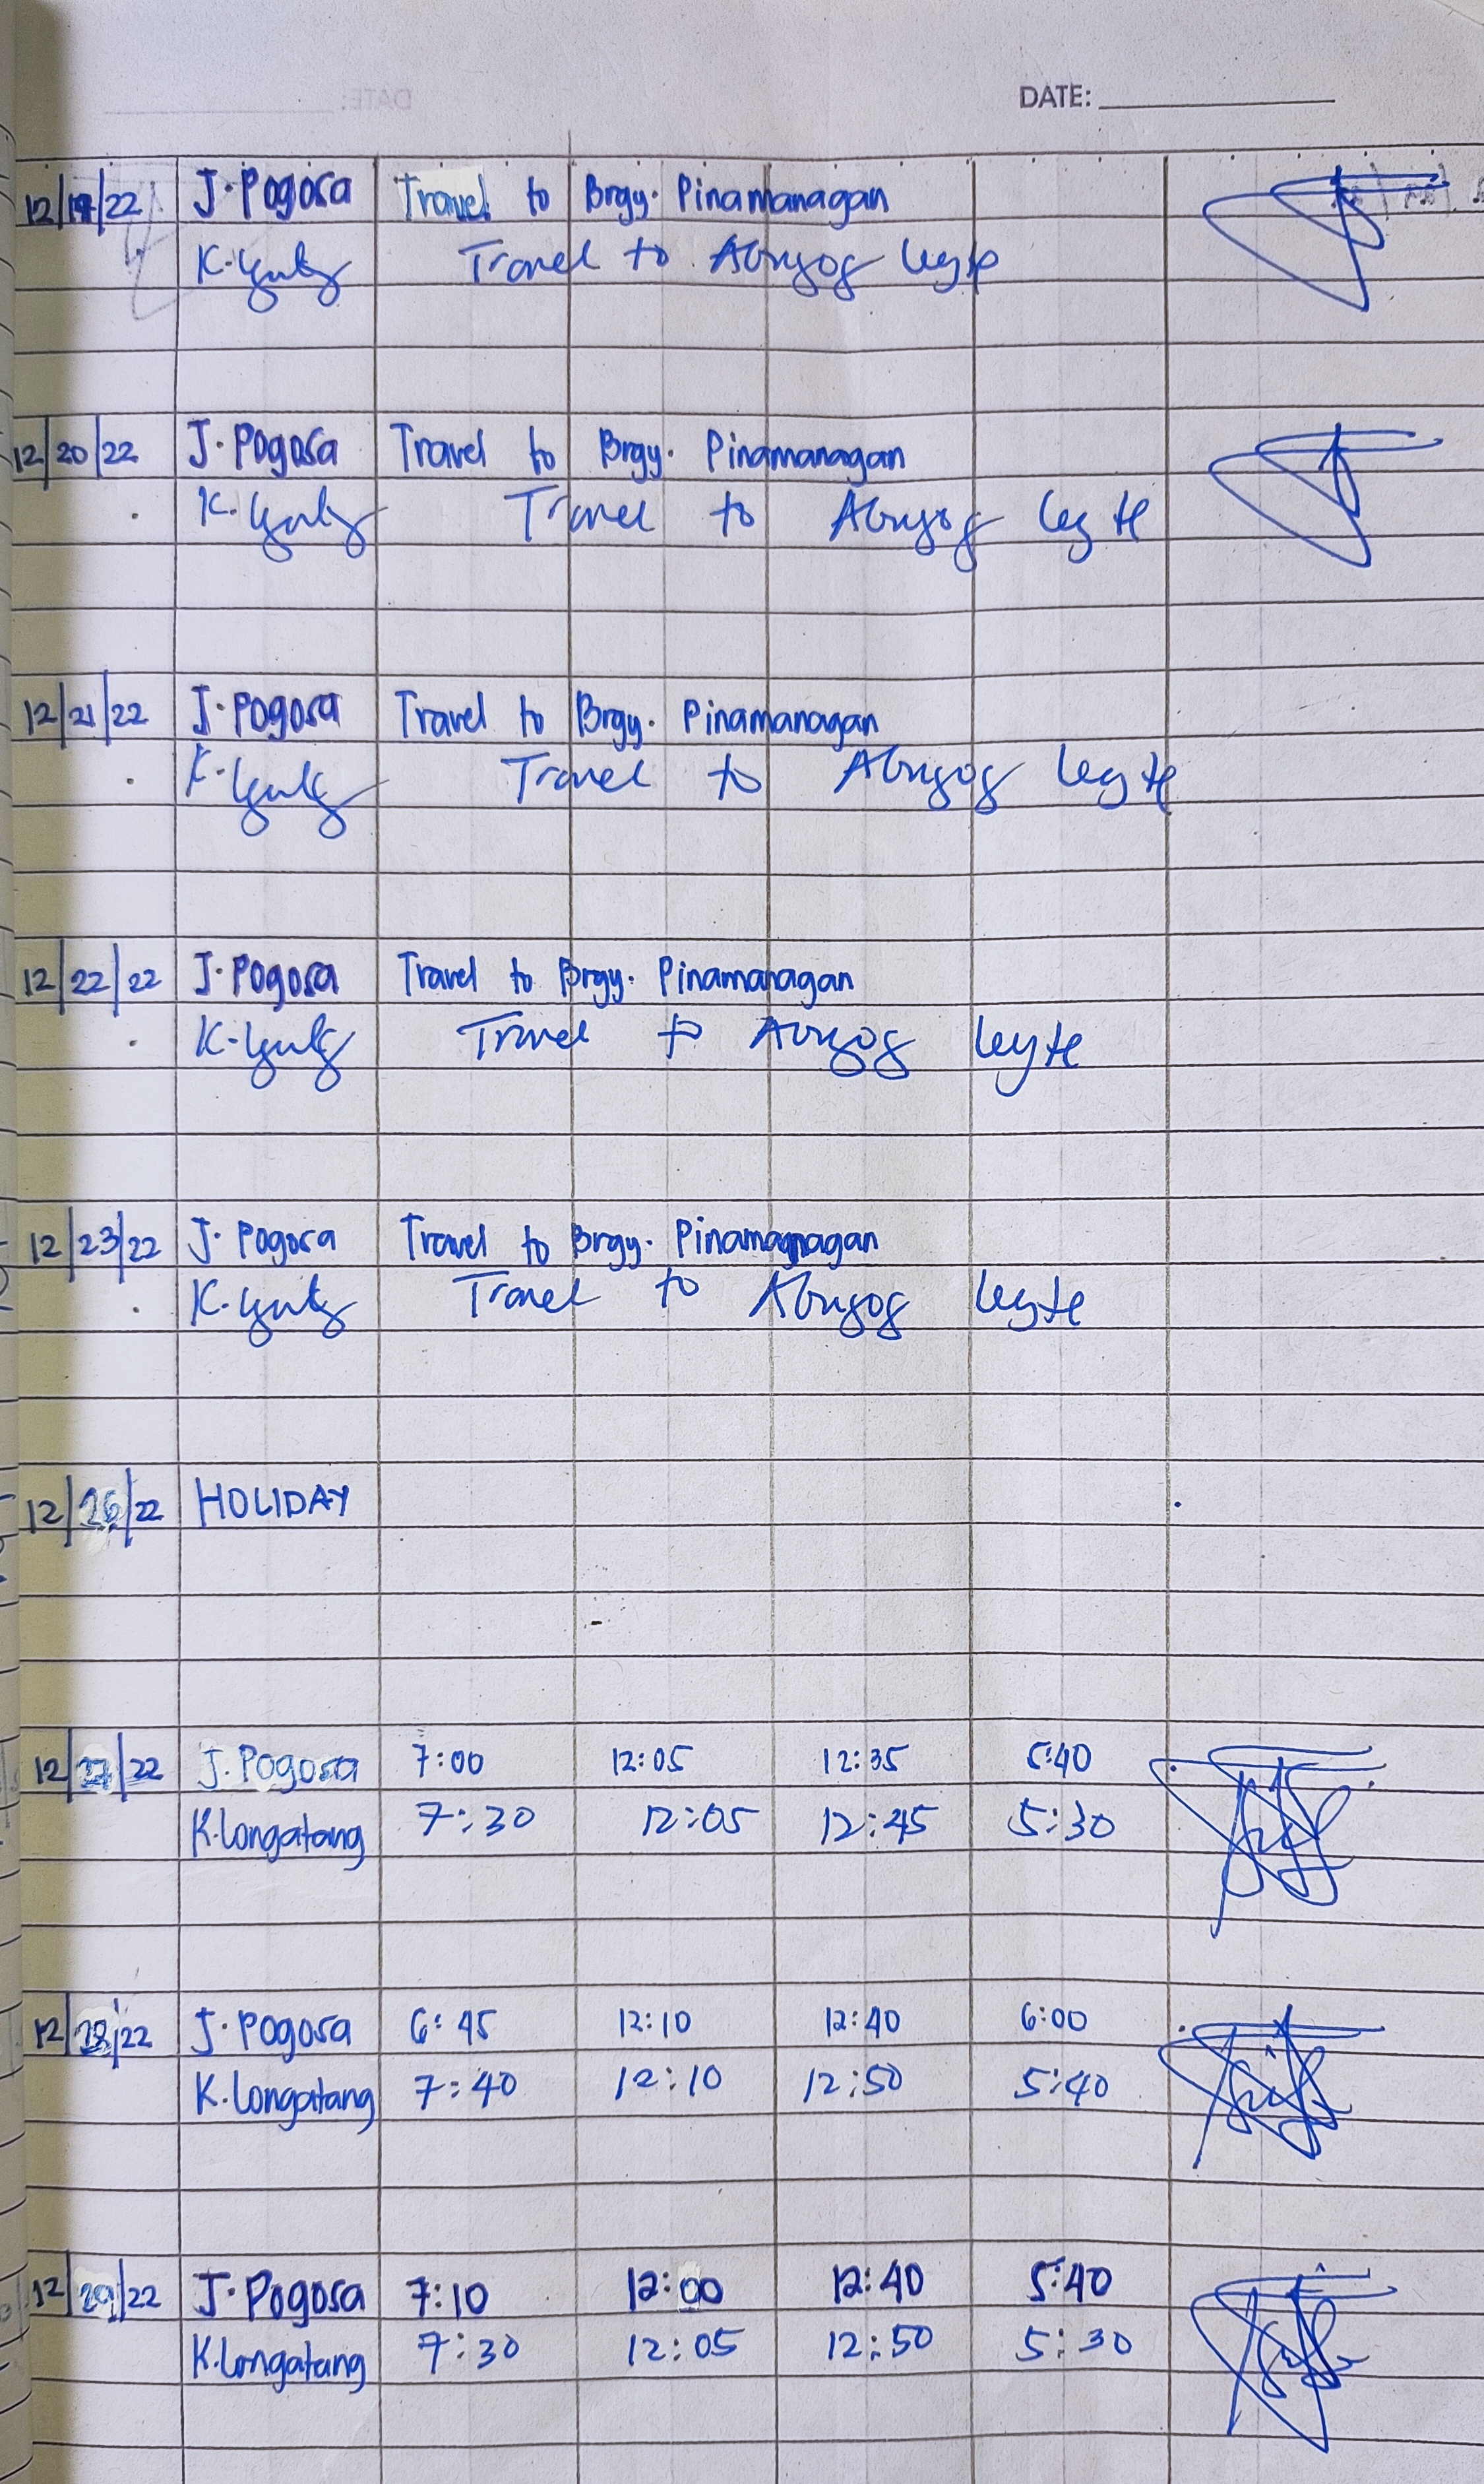 DATE:
12/19/22 J. Pogosa Travel to Brgy. Pinamanagan
K. Travel to Abuyog Leyte
12/20/22 J. Pogosa Travel to Brgy. Pinamanagan
K. Travel to Abuyog Leyte
12/21/22 J. Pogosa Travel to Brgy. Pinamanagan
K. Travel to Abuyog Leyte
12/22/22 J. Pogosa Travel to Brgy. Pinamanagan
K. Travel to Abuyog Leyte
12/23/22 J. Pogosa Travel to Brgy. Pinamanagan
K. Travel to Abuyog Leyte
12/26/22 HOLIDAY
12/27/22 J. Pogosa 7:00 12:05 12:35 5:40
K. Longatang 7:30 12:05 12:45 5:30
12/28/22 J. Pogosa 6:45 12:10 12:40 6:00
K. Longatang 7:40 12:10 12:50 5:40
12/29/22 J. Pogosa 7:10 12:00 12:40 5:40
K. Longatang 7:30 12:05 12:50 5:30